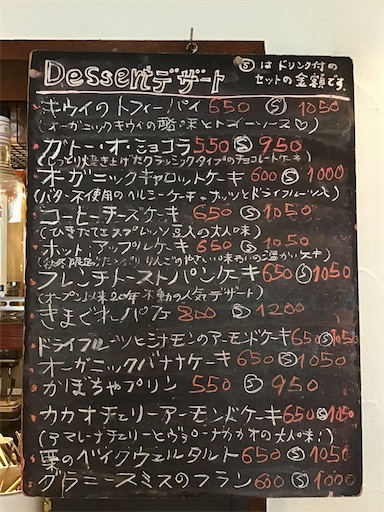 Dessert デザート
Ⓢはドリンク付の
セットの金額です。
キウイのトフィーパイ 650 Ⓢ 1050
(オーガニックキウイの酸味とトフィーソース♡)
ガトー・オ・ショコラ 550 Ⓢ 950
(しっとり焼き上げたクラシックタイプのチョコレートケーキ)
オーガニックキャロットケーキ 600 Ⓢ 1000
(バター不使用のヘルシーケーキ ナッツとドライフルーツ入)
コーヒーチーズケーキ 650 Ⓢ 1050
(ひきたてエスプレッソ豆入の大人味)
ホットアップルケーキ 650 Ⓢ 1050
(秋冬限定 りんごのやさしい味わいの温かいケーキ)
フレンチトーストパンケーキ 650 Ⓢ 1050
(オープン以来20年不動の人気デザート)
きまぐれパフェ 800 Ⓢ 1200
ドライフルーツとシナモンのアーモンドケーキ 650 Ⓢ 1050
オーガニックバナナケーキ 650 Ⓢ 1050
かぼちゃプリン 550 Ⓢ 950
カカオチェリーアーモンドケーキ 650 Ⓢ 1050
(アマレーナチェリーとヴァローナカカオの大人味!)
栗のベイクウェルタルト 650 Ⓢ 1050
グラニースミスのフラン 600 Ⓢ 1000